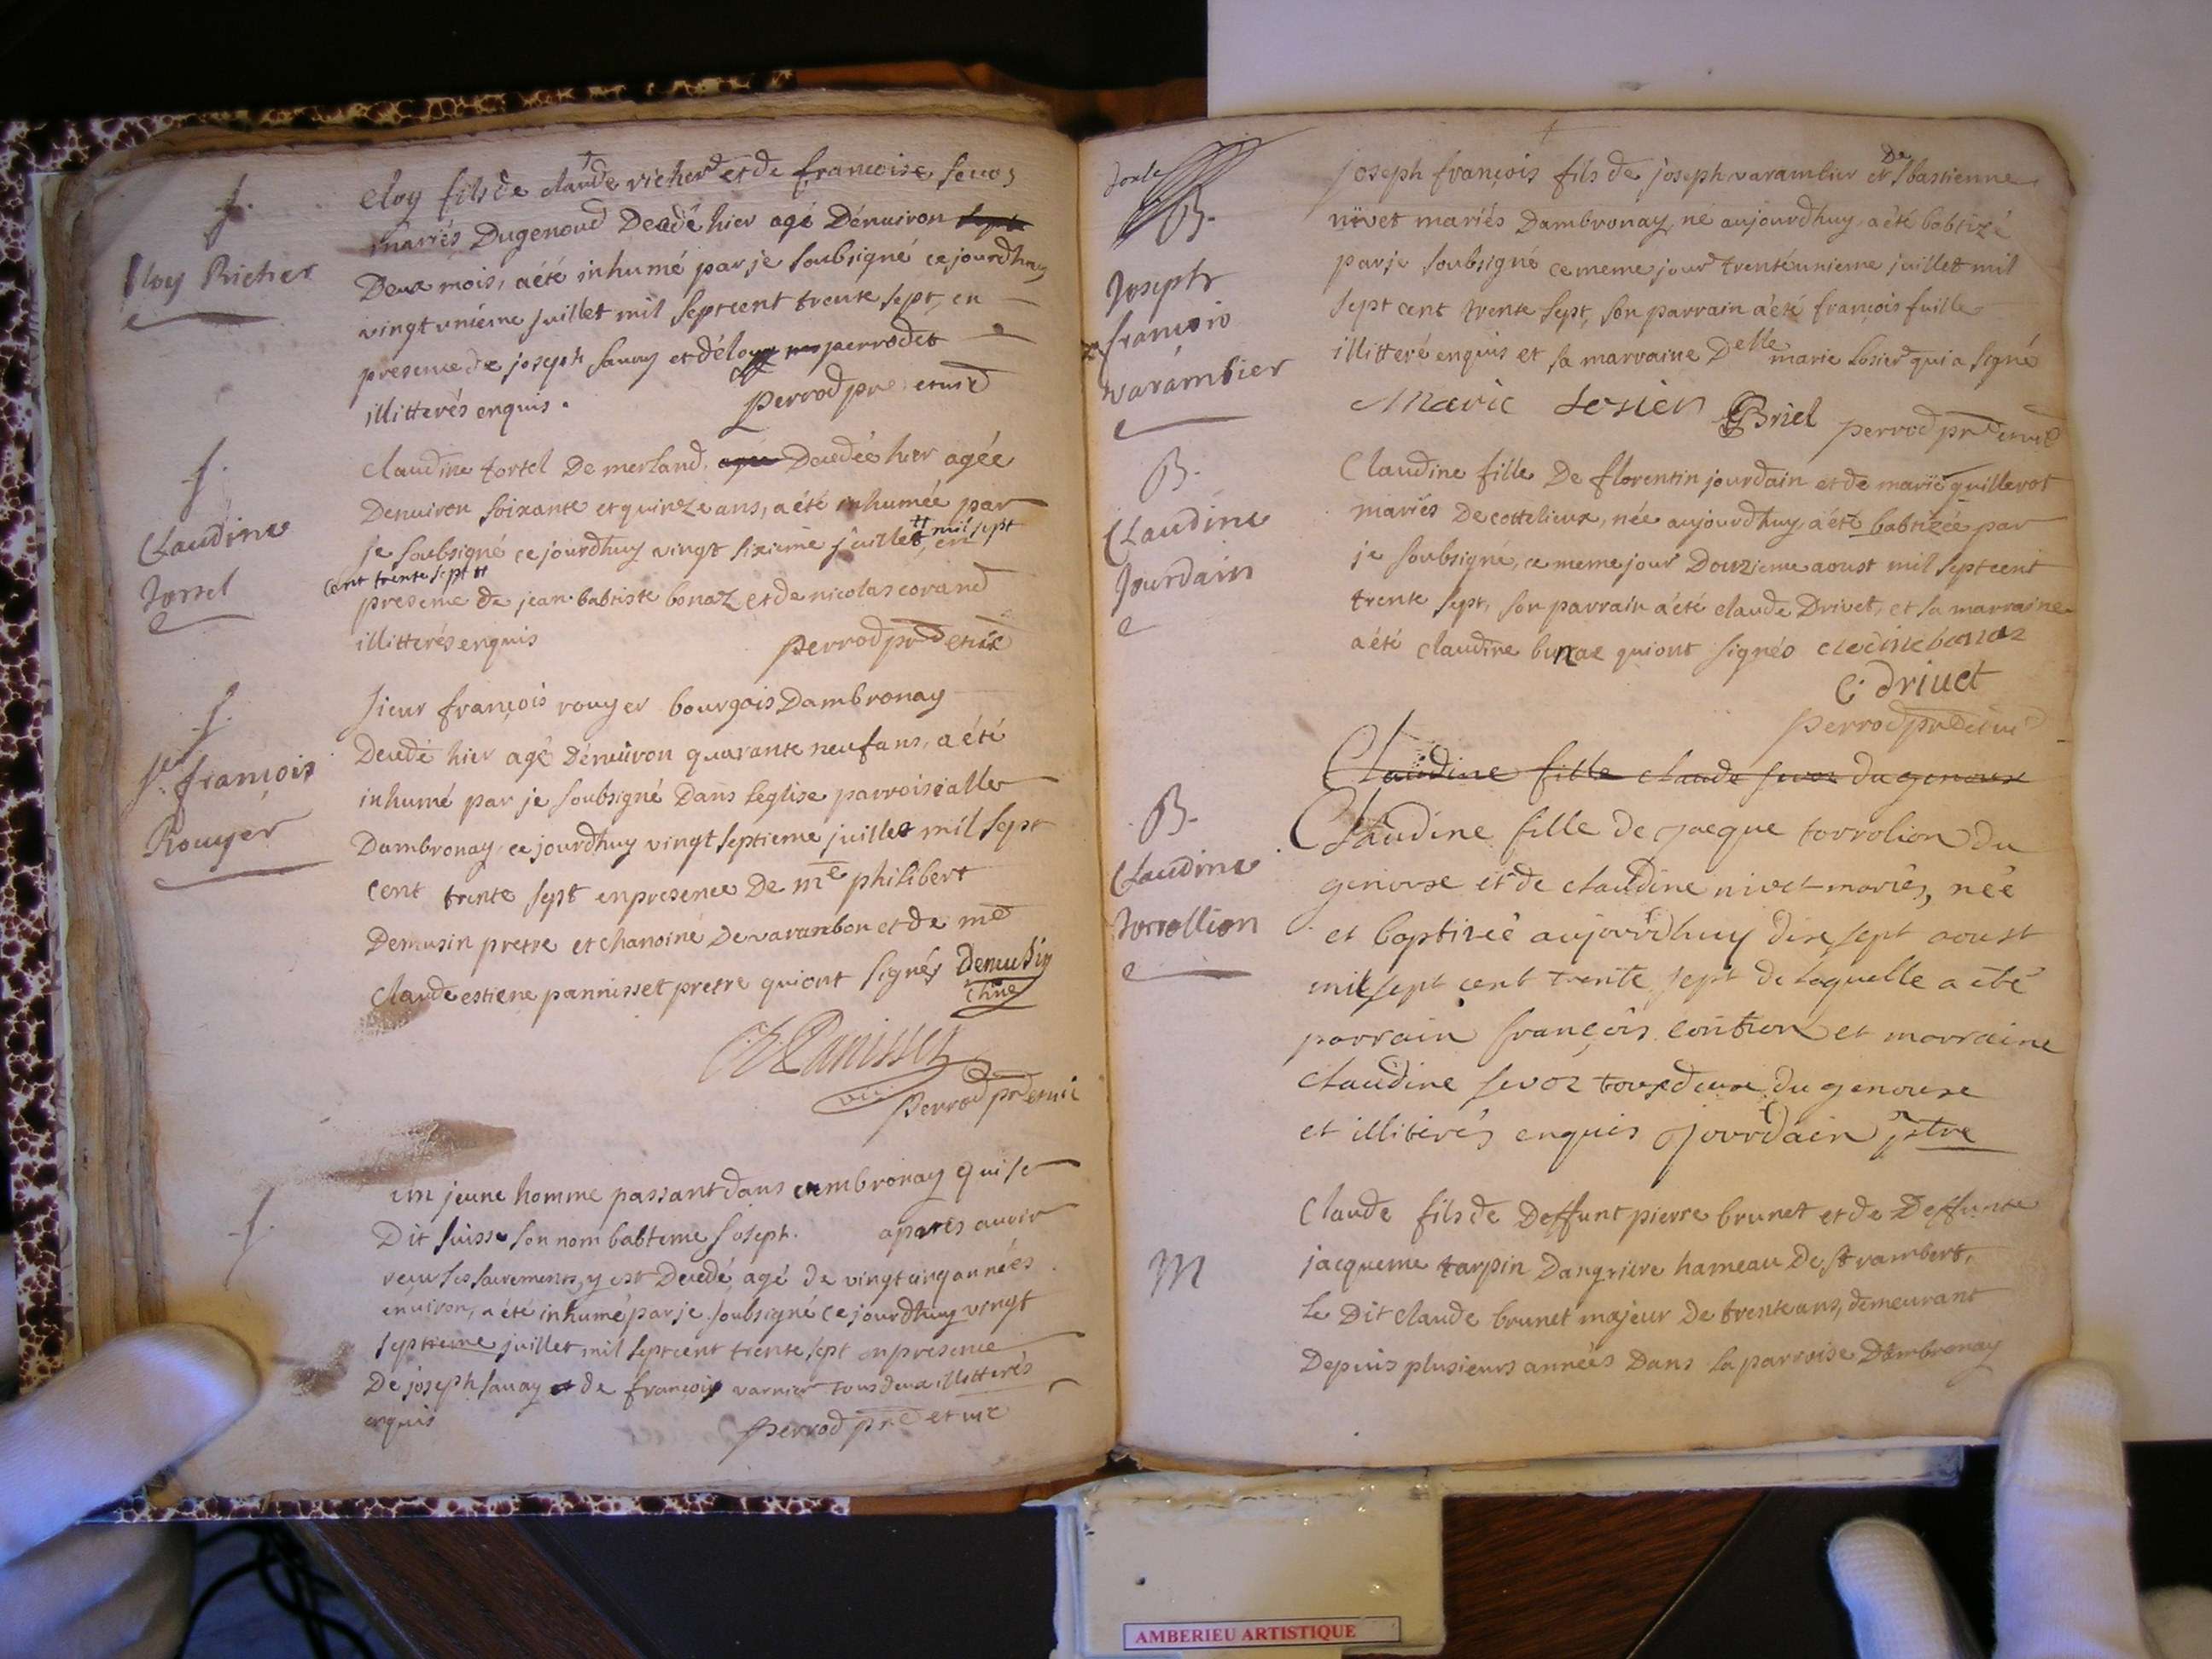 f.
Eloy Richer
Eloy fils de claude richerd et de francoise sevoz
mariés Dugenoud Decedé hier agé Dénuiron
Deux mois, a été inhumé par je soubsigné ce jourdhuy
vingt unieme juillet mil septcent trente sept, en
presence de joseph sauay et déloy perrodet
illitterés enquis.
perrod pre et vic
f.
Claudine
Tortel
Claudine tortel De merland, agée Decedée hier agée
Denuiron soixante et quinze ans, a été inhumée par
je soubsigné ce jourdhuy vingt sixieme juillet # mil sept
cent trente sept # en
presence de jean babtiste bonaz et de nicolas corand
illitterés enquis
perrod pre et vic
f.
Sr. françois
Rouyer
sieur françois rouyer bourgois Dambronay
Decedé hier agé Dénuiron quarante neuf ans, a été
inhumé par je soubsigné Dans leglise parroissialle
Dambronay, ce jourdhuy vingt septieme juillet mil sept
cent trente sept en presence De me philibert
Demusin pretre et chanoine De varambon et de me
Claude estiene pannisset pretre qui ont signés Demusin
chne
C E Panisset
vic
perrod pre et vic
f.
un jeune homme passant dans ambronay qui se
Dit suisse son nom babteme joseph. apares auoir
reçu les sacrements, y est Decedé, agé de vingt cinq années
enuiron, a été inhumé par je soubsigné ce jourdhuy vingt
septieme juillet mil septcent trente sept en presence
De joseph sauay et de françois varnier tous deux illitterés
enquis
perrod pre et vic
B.
Joseph
françois
varambier
joseph françois fils de joseph varambier et De sbastienne
nivet mariés Dambronay, né aujourdhuy, a été babtizé
par je soubsigné ce meme jour trente unieme juillet mil
sept cent trente sept, son parrain a été françois fuille
illitteré enquis et sa marraine Delle marie Losier qui a signé
Marie Losier Briel perrod pre et vic
B.
Claudine
Jourdain
Claudine fille De florentin jourdain et de marie quillerot
mariés De cottelieux, née aujourdhuy, a été babtizée par
je soubsigné, ce meme jour Douzieme aoust mil septcent
trente sept, son parrain a été claude Drivet, et sa marraine
a été claudine bonaz qui ont signés clodine bonaz
C. driuet
perrod pre et vic
Claudine fille claude sevoz du genoux
B.
Claudine
Torrollion
Claudine fille de jacque torrolion du
genoux et de claudine nivet mariés, née
et baptizeé aujourdhuy dix sept aoust
mil sept cent trente sept de laquelle a été
parrain françois contion et marraine
claudine sevoz tous deux du genoux
et illiterés enquis Jourdain ptre
M
Claude fils de Deffunt pierre brunet et de Deffunte
jacqueme tarpin Dangriere hameau De st rambert,
Le Dit claude brunet majeur De trente ans, demeurant
Depuis plusieurs années Dans la parroise Dambronay
AMBERIEU ARTISTIQUE